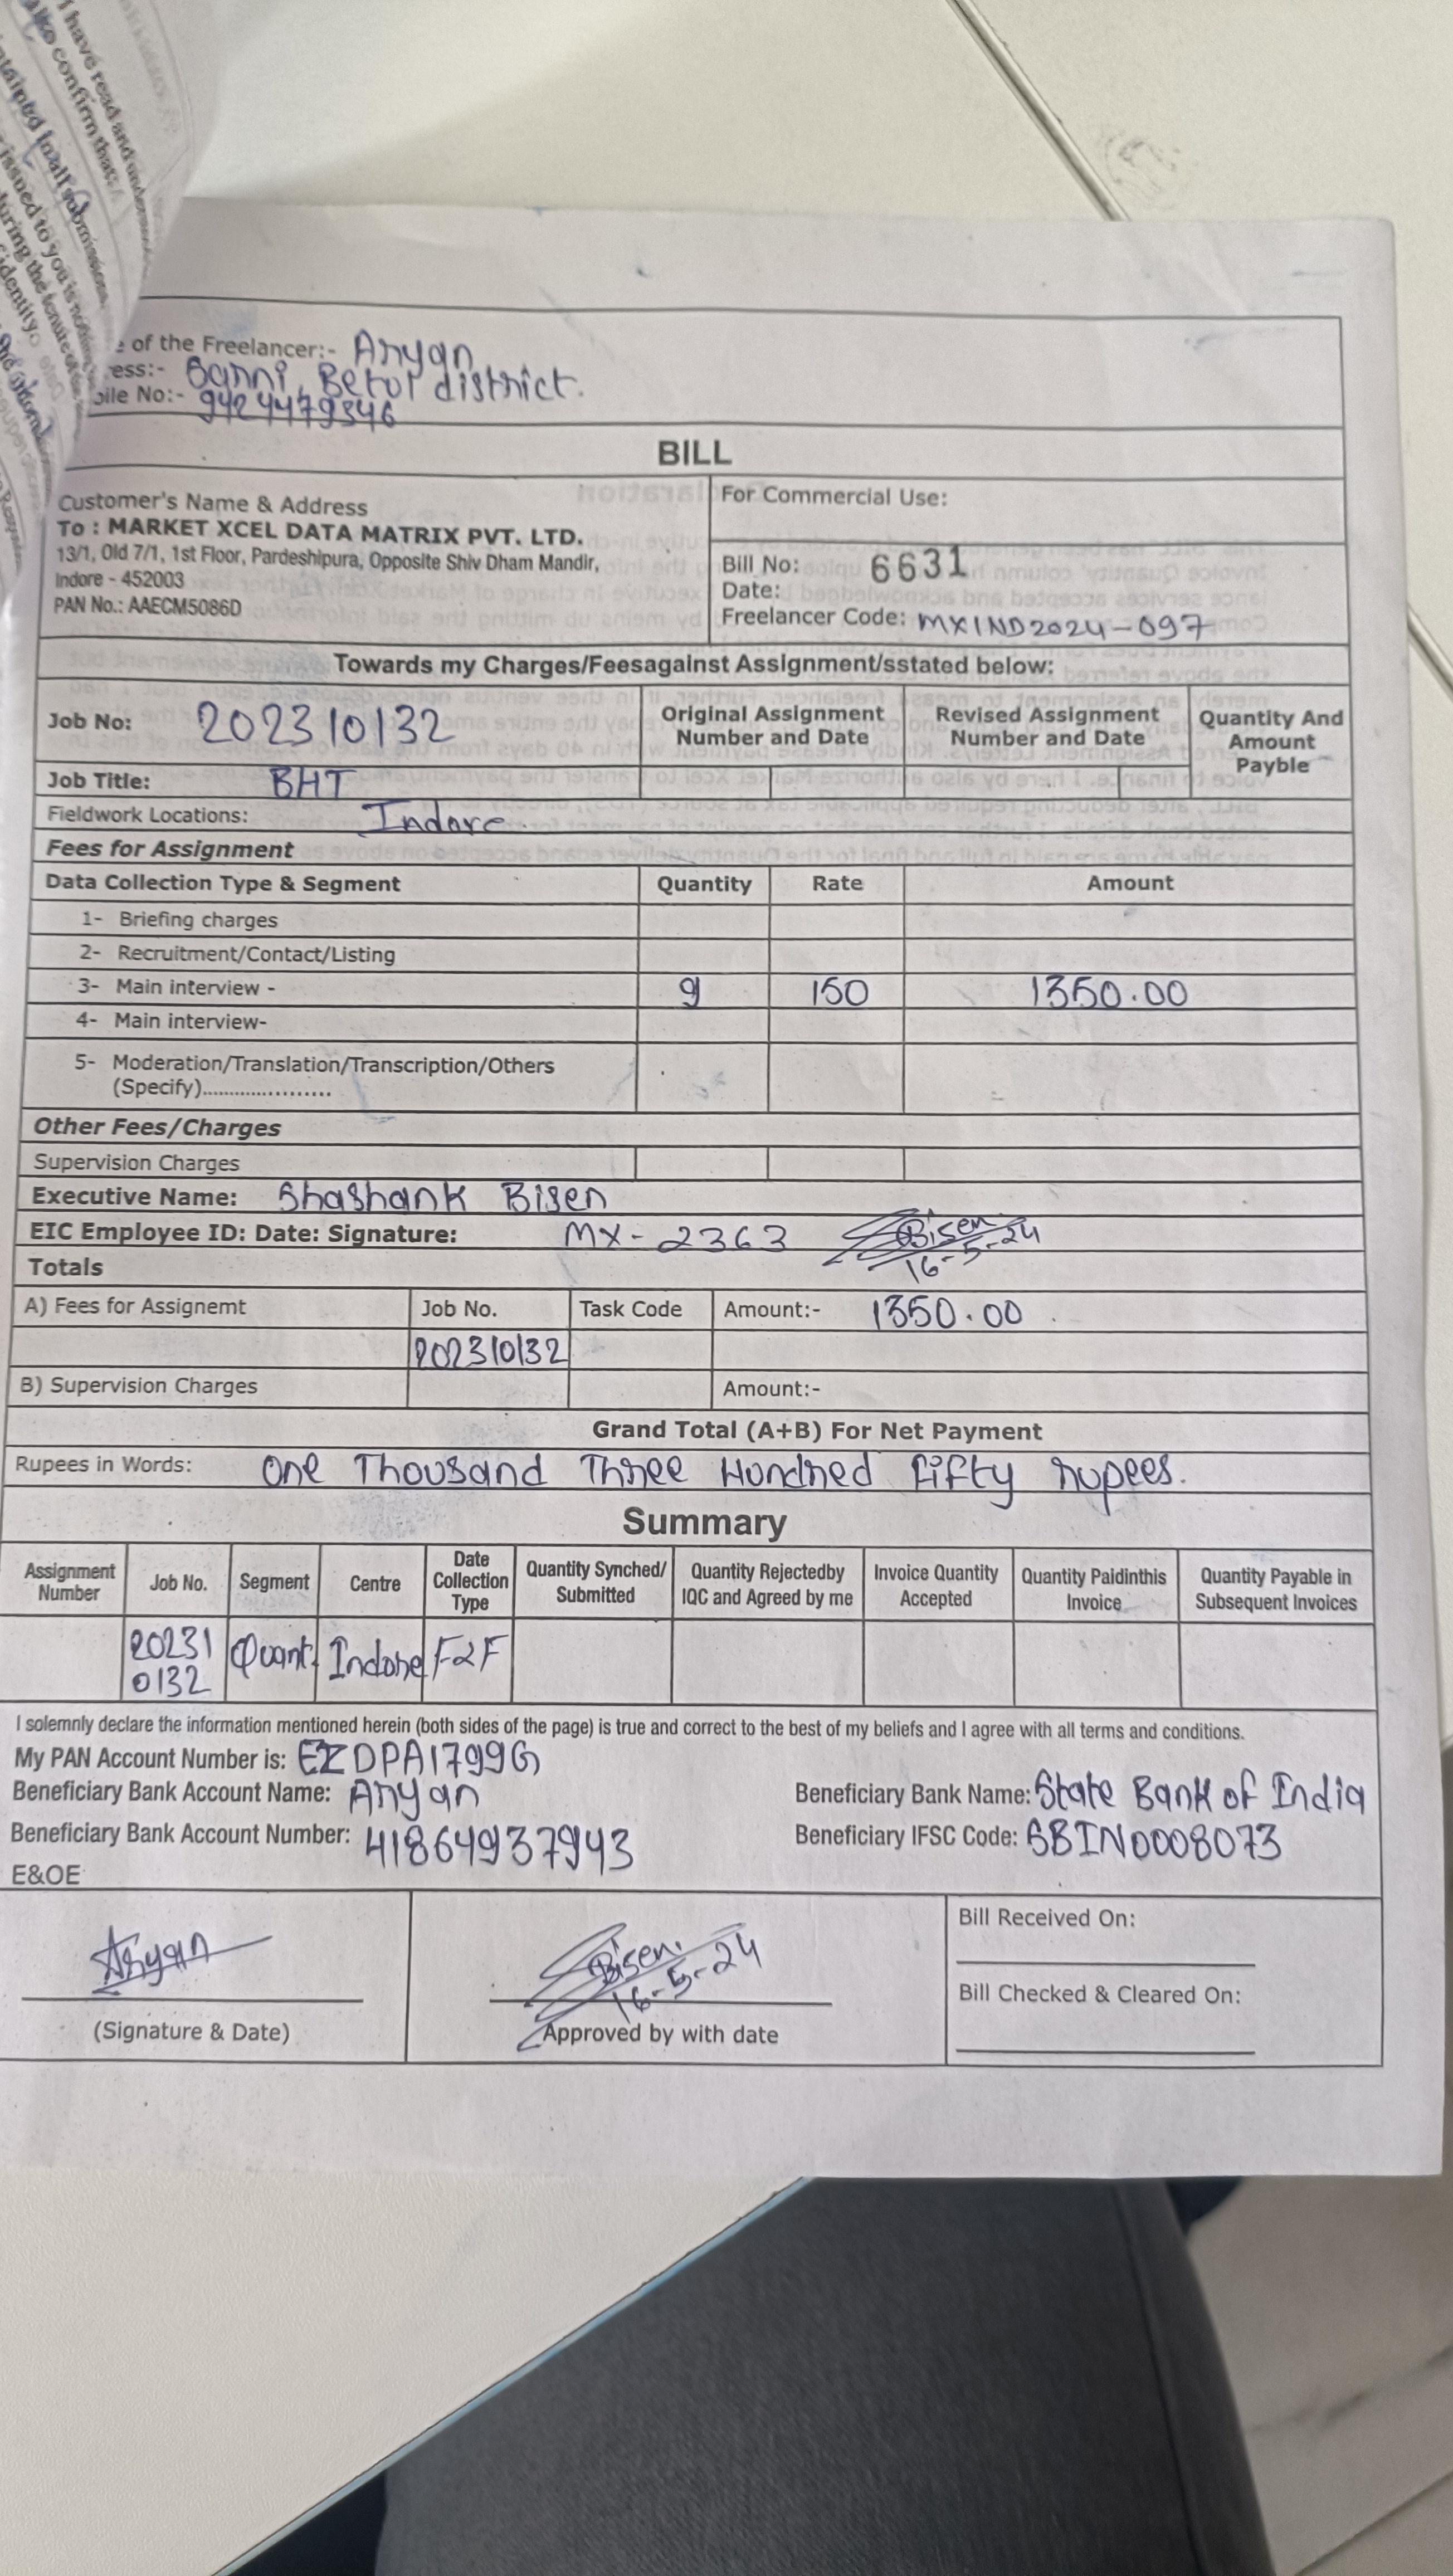 I have read and
also confirm that
in all submissions
issued to you is
during the tenure
identity
of the Freelancer:- Aryan
ess:- Barni, Betul district.
ile No:- 9424479346
BILL
Customer's Name & Address
To : MARKET XCEL DATA MATRIX PVT. LTD.
13/1, Old 7/1, 1st Floor, Pardeshipura, Opposite Shiv Dham Mandir,
Indore - 452003
PAN No.: AAECM5086D
For Commercial Use:
Bill No: 6631
Date:
Freelancer Code: MXIND2024-097
Towards my Charges/Feesagainst Assignment/sstated below:
Job No: 202310132
Original Assignment Number and Date
Revised Assignment Number and Date
Quantity And Amount Payble
Job Title: BHT
Fieldwork Locations: Indore.
Fees for Assignment
Data Collection Type & Segment Quantity Rate Amount
1- Briefing charges
2- Recruitment/Contact/Listing
3- Main interview - 9 150 1350.00
4- Main interview-
5- Moderation/Translation/Transcription/Others
(Specify)......................
Other Fees/Charges
Supervision Charges
Executive Name: Shashank Bisen
EIC Employee ID: Date: Signature: MX-2363 Bisen
16-5-24
Totals
A) Fees for Assignemt Job No. Task Code Amount:- 1350.00
202310132
B) Supervision Charges Amount:-
Grand Total (A+B) For Net Payment
Rupees in Words: One Thousand Three Hundred Fifty rupees.
Summary
Assignment Number
Job No.
Segment
Centre
Date Collection Type
Quantity Synched/ Submitted
Quantity Rejectedby IQC and Agreed by me
Invoice Quantity Accepted
Quantity Paidinthis Invoice
Quantity Payable in Subsequent Invoices
20231 Quant. Indore F2F
0132
I solemnly declare the information mentioned herein (both sides of the page) is true and correct to the best of my beliefs and I agree with all terms and conditions.
My PAN Account Number is: EZDPA1799G
Beneficiary Bank Account Name: Aryan
Beneficiary Bank Name: State Bank of India
Beneficiary Bank Account Number: 41864937943
Beneficiary IFSC Code: SBIN0008073
E&OE
Aryan
(Signature & Date)
Bisen.
16-5-24
Approved by with date
Bill Received On:
Bill Checked & Cleared On: